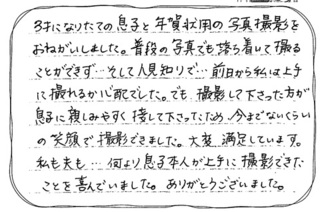 3才になりたての息子と年賀状用の写真撮影を
おねがいしました。普段の写真でも落ち着いて撮る
ことができず…そして人見知りで…前日から私は上手
に撮れるか心配でした。でも、撮影して下さった方が
息子に親しみやすく接して下さったため、今までないくらい
の笑顔で撮影できました。大変満足しています。
私も夫も…何より息子本人が上手に撮影できた
ことを喜んでいました。ありがとうございました。